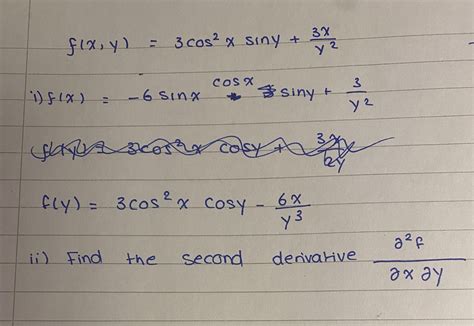 f(x,y) = 3cos² x siny + 3x/y²
i) f(x) = -6 sinx cosx siny + 3/y²
f(y) = 3cos² x cosy - 6x/y³
ii) Find the second derivative ∂²f/∂x ∂y